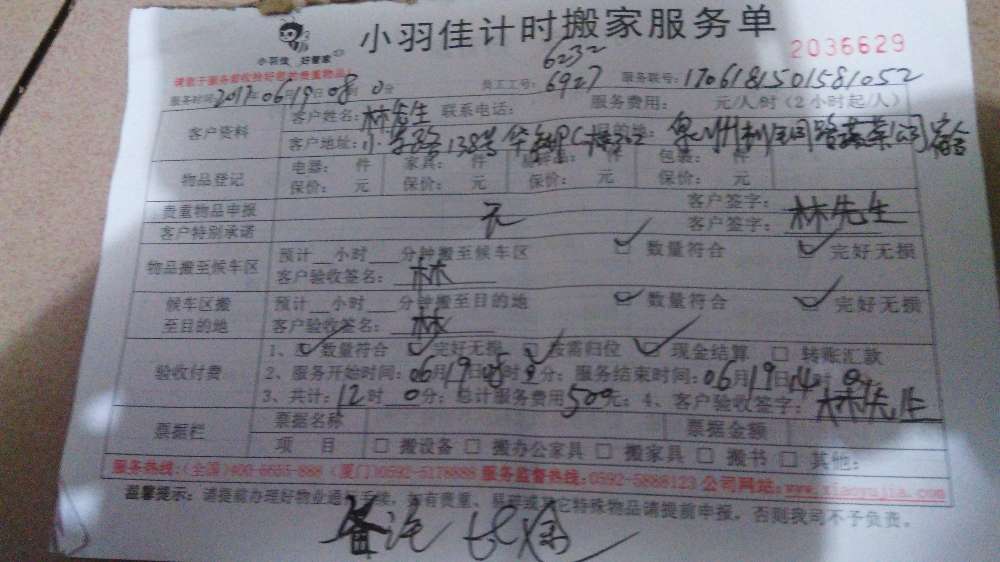 小羽佳计时搬家服务单
小羽佳 好管家
2036629
请在于服务前收捡好您的贵重物品!
6232
服务时间:2017年06月19日08时0分 员工工号:6927 服务联号:1706181501581052
客户资料 客户姓名:林先生 联系电话: 服务费用: 元/人/时(2小时起/人)
客户地址: 138号 目的地: 泉州
物品登记 电器: 件 家具: 件 件 包装: 件
保价: 元 保价: 元 保价: 元 保价: 元
贵重物品申报 元 客户签字:林先生
客户特别承诺 客户签字:
物品搬至候车区 预计__小时___分钟搬至候车区 数量符合 完好无损
客户验收签名:林
候车区搬至目的地 预计__小时___分钟搬至目的地 数量符合 完好无损
客户验收签名:林
验收付费 1、数量符合 完好无损 按需归位 现金结算 □ 转账汇款
2、服务开始时间:06月19日 时 分;服务结束时间:06月19日14时0
3、共计:12时0分;总计服务费用500元;4、客户验收签字:林先生
票据栏 票据名称 票据金额
项 目 □ 搬设备 □ 搬办公家具 □ 搬家具 □ 搬书 □ 其他:
服务热线:(全国)400-6655-888 (厦门)0592-5178888 服务监督热线:0592-5888123 公司网站:www.xiaoyujia.com
温馨提示:请提前办理好物业通行手续,如有贵重、易碎或其它特殊物品请提前申报,否则我司不予负责。
备注